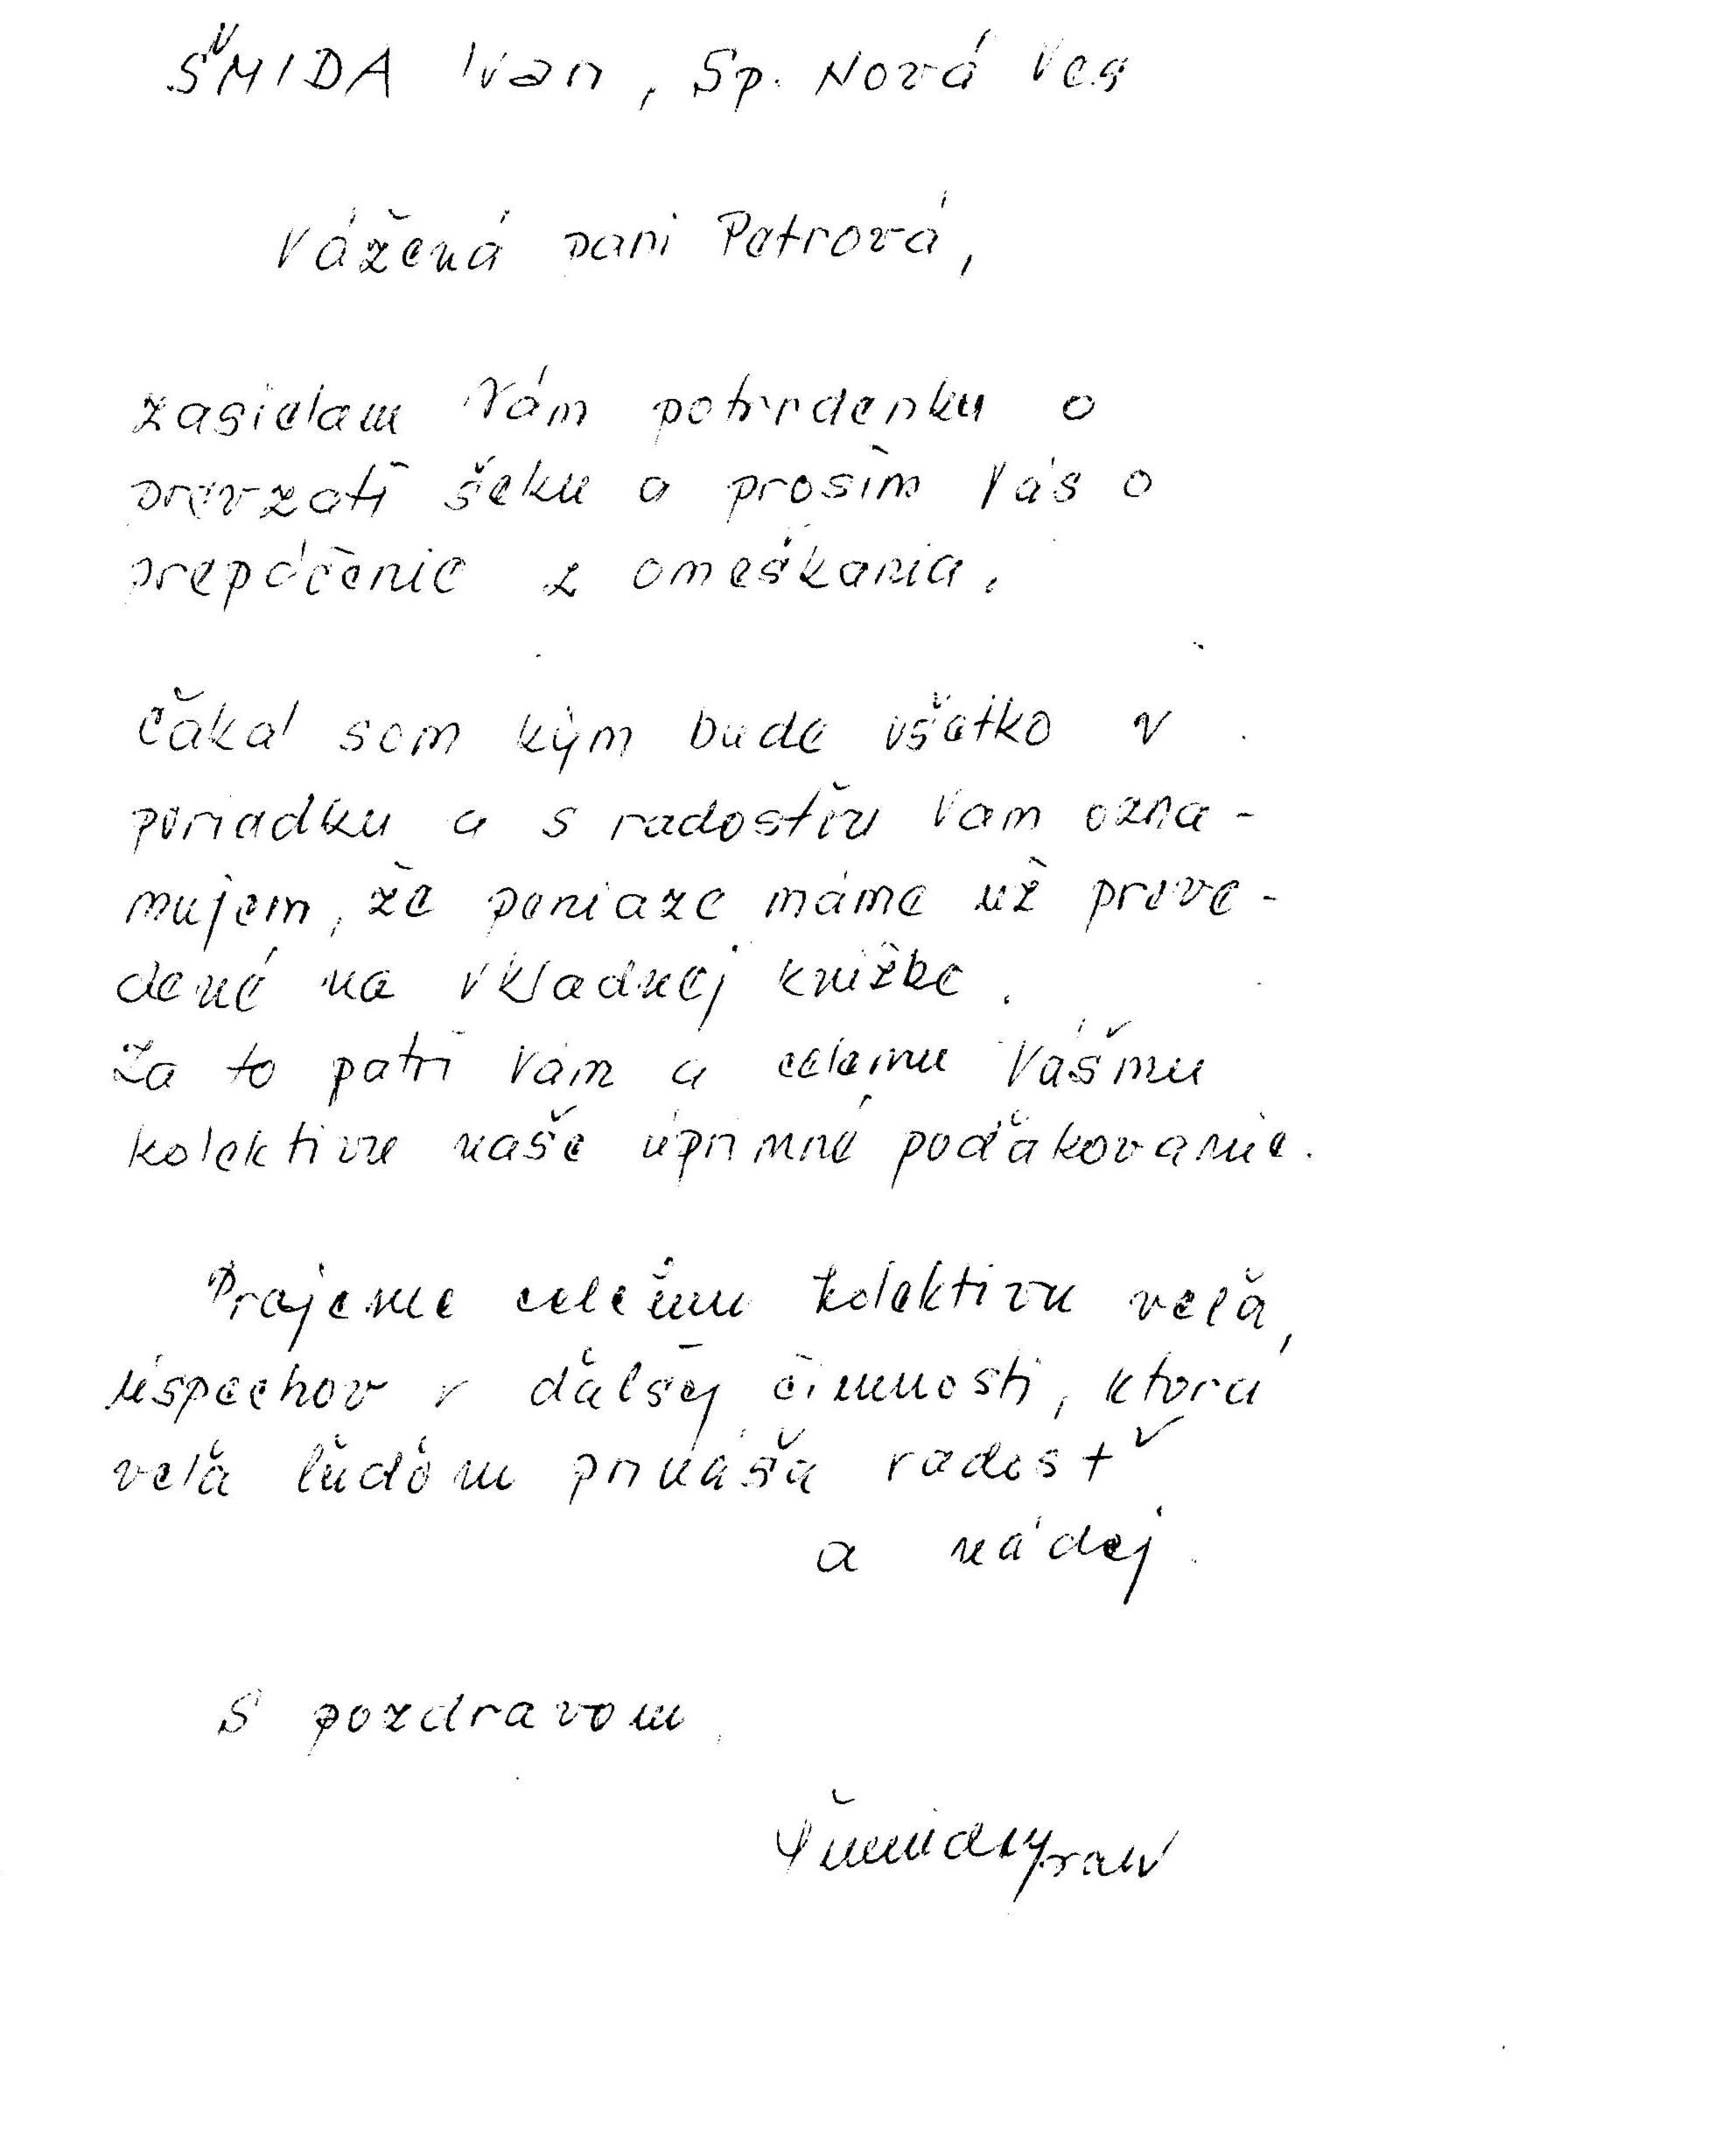 ŠMIDA Ivan, Sp. Nová Ves
Vážená pani Petrová,
zasielam Vám potvrdenku o
prevzatí šeku a prosím Vás o
prepáčenie z omeškania.
Čakal som kým bude všetko v
poriadku a s radosťou Vam ozna-
mujem, že peniaze máme už preve-
dené na vkladnej knižke.
Za to patrí Vám a celému Vášmu
kolektivu naše úprimné poďakovanie.
Prajeme celému kolektivu veľa
úspechov v ďalšej činnosti, ktorá
veľa ľuďom prináša radosť
a nádej.
S pozdravom
Šmida Ivan